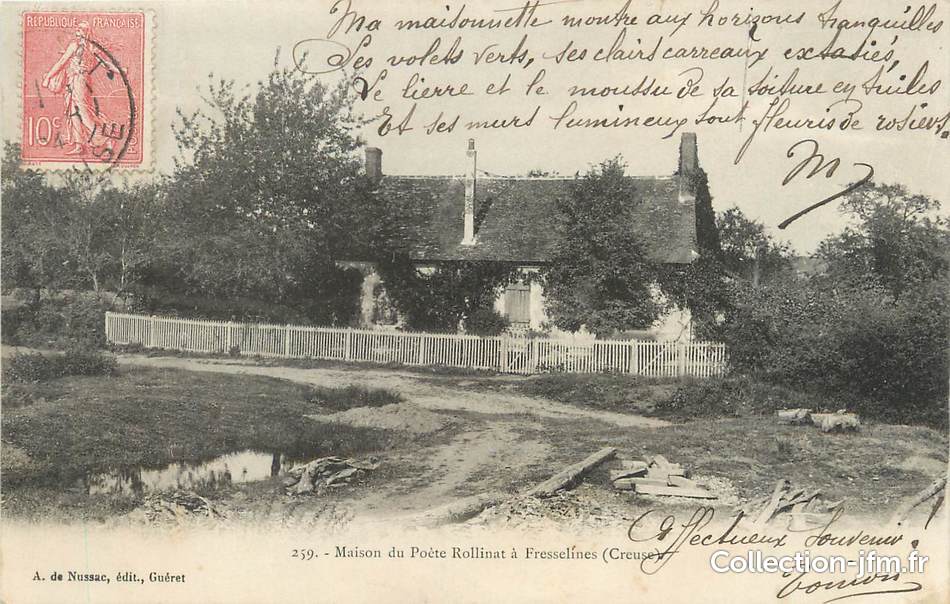 RÉPUBLIQUE FRANÇAISE
10c
Ma maisonnette montre aux horizons tranquilles
Ses volets verts, ses clairs carreaux extasiés,
Le lierre et le mousse de sa toiture en tuiles
Et ses murs lumineux sont fleuris de rosiers.
259. - Maison du Poète Rollinat à Fresselines (Creuse)
Affectueux Souvenir
A. de Nussac, édit., Guéret
Collection-jfm.fr